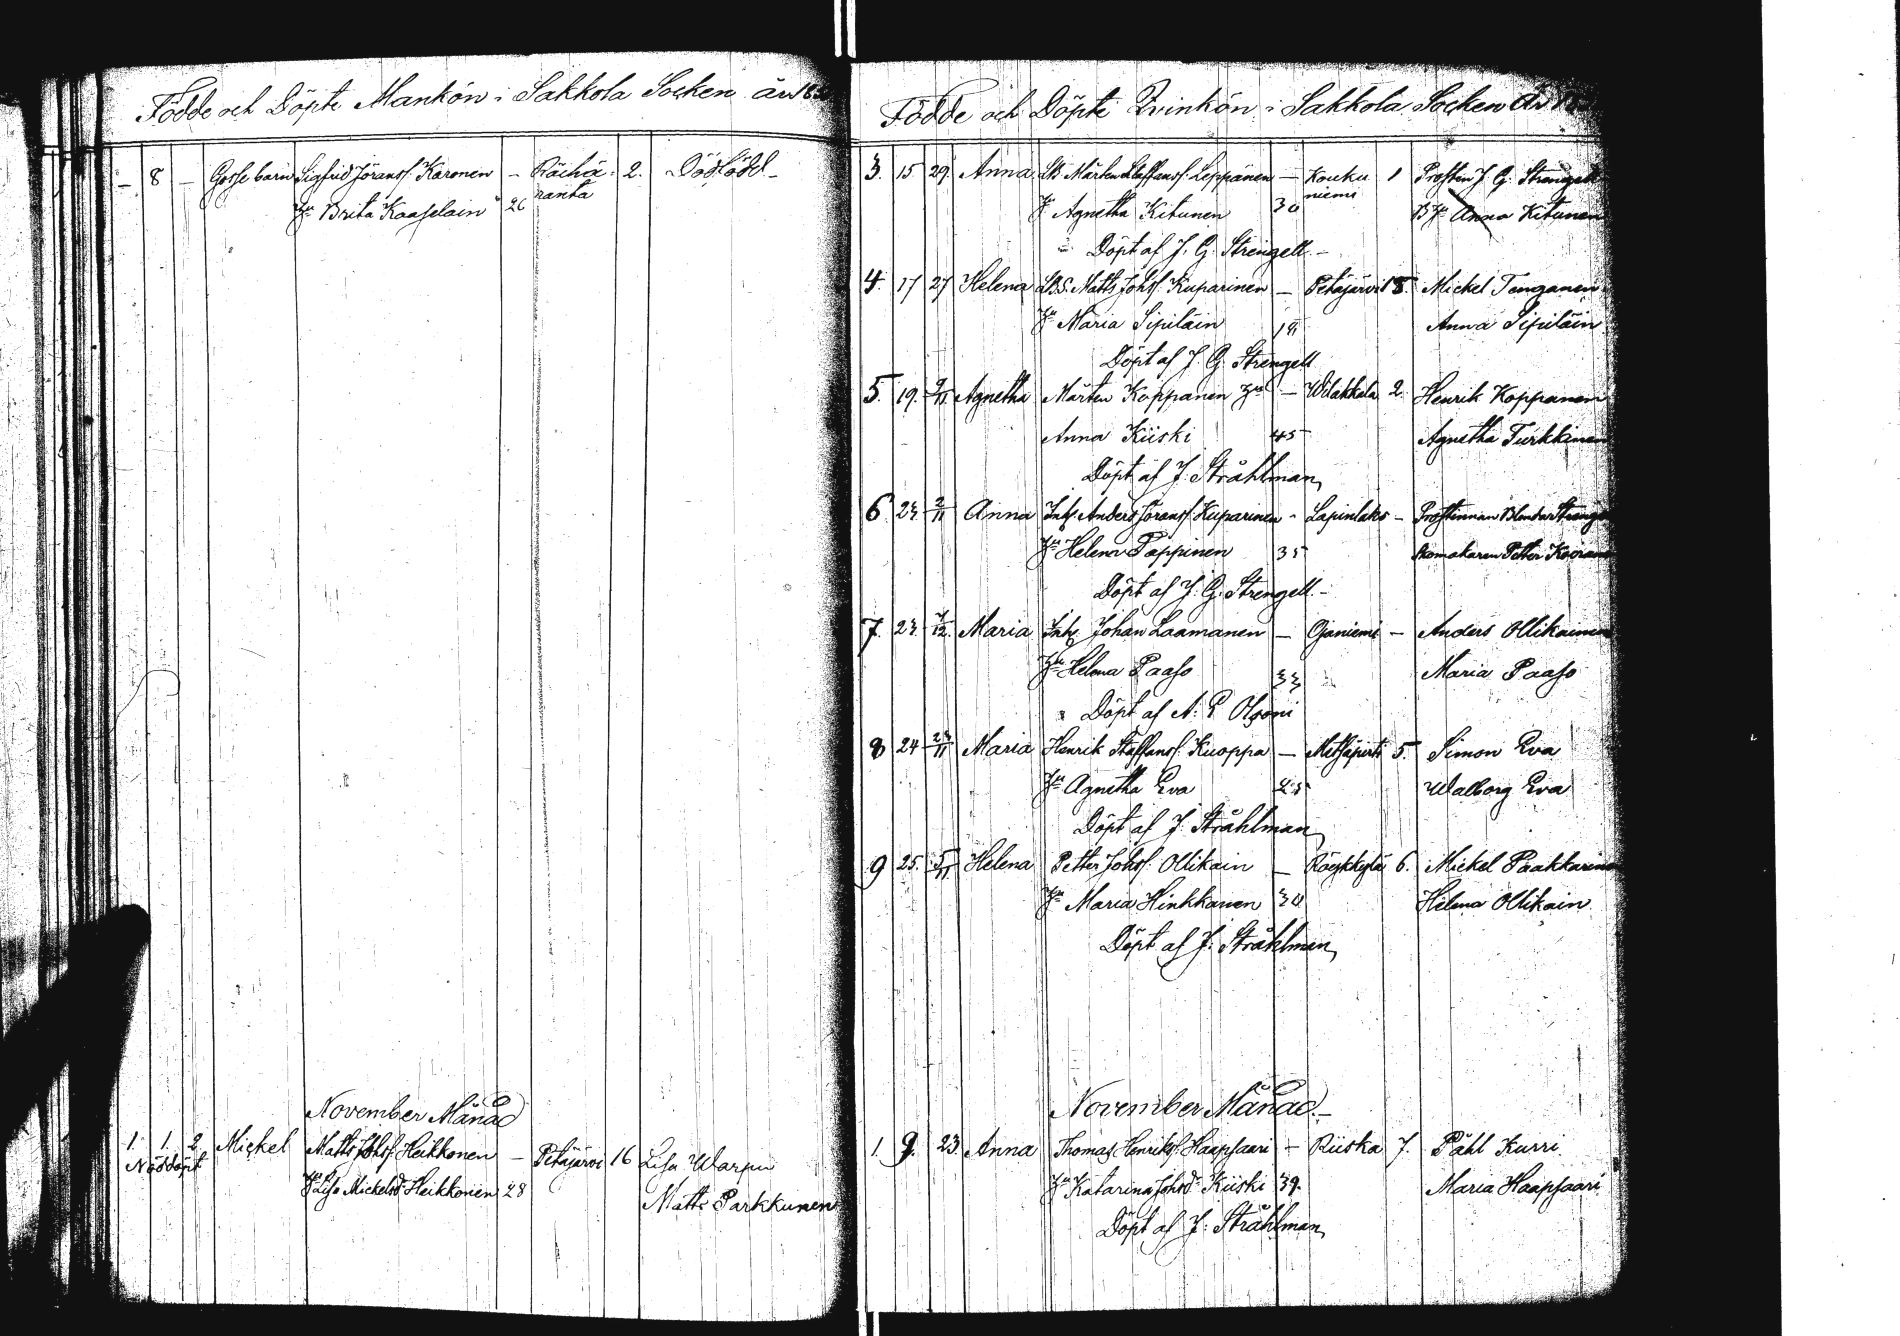 Födde och Döpte Mankön i Sakkola Socken år 18
– 8 – Gosse barn Sigfrid Jöransſ. Karonen – Räihä- 2. Dödfödd –
hu Brita Kaaselain 26 ranta
November Månad
1. 1. 2 Mickel Matts Johsſ. Heikkonen – Petäjärvi 16 Lisa Warpu
Nöddöpt hu Lisa Mickelsd. Heikkonen 28
Matts Parkkunen
Födde och Döpte Qvinkön i Sakkola Socken År 18
3. 15 29. Anna Mårten Staffansſ. Leppänen – Kouku 1 Prosten J. G. Strengell
hu Agnetha Kitunen 30 niemi Anna Kitunen
Döpt af J. G. Strengell –
4. 17 27 Helena Matts Johsſ Kuparinen – Petäjärvi 18. Mickel Tenganen
hu Maria Sipiläin 18 Anna Sipiläin
Döpt af J. G. Strengell
5. 19. 9/11 Agnetha Mårten Koppanen hu – Wilakkala 2. Henrik Koppanen
Anna Kiiski 45 Agnetha Turkkinen
Döpt af J. Stråhlman,
6 23 2/11 Anna Inh. Anders Jöransſ. Kuparinen – Lapinlaks – Prostinnan Strengell
hu Helena Pappinen 35 Skomakaren Petter
Döpt af J. G. Strengell –
7. 23. Maria Inh. Johan Laamanen – Ojaniemi – Anders Ollikainen
hu Helena Paaſo 33 Maria Paaſo
Döpt af A. P. Olsoni
8 24 Maria Henrik Staffansſ. Kuoppa – Metsäpirti 5. Simon Eva
hu Agnetha Eva 25 Walborg Eva
Döpt af J. Stråhlman,
9 25. 5/11 Helena Petter Johsſ. Ollikain – Röykkylä 6. Mickel Paakkarinen
hu Maria Hinkkanen 30 Helena Ollikain
Döpt af J. Stråhlman,
November Månad. –
1. 9. 23. Anna Thomas Henriksſ. Haapsaari – Riiska 7. Påhl Kurri
hu Katarina Johsd. Kiiski 39. Maria Haapsaari
Döpt af J. Stråhlman,